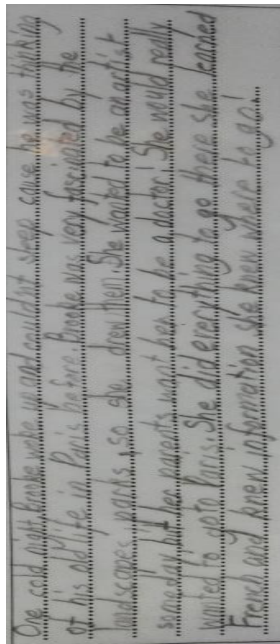 One cold night, Brooke woke up and couldn't sleep cause he was thinking
of his old life in Paris before. Brooke was very fascinated by the
landscapes, parks, so she drew then. She wanted to be an artist
someday but her parents want her to be a doctor. She would really
wanted to go to Paris. She did everything to go there she learned
French and knew information she knew where to go!